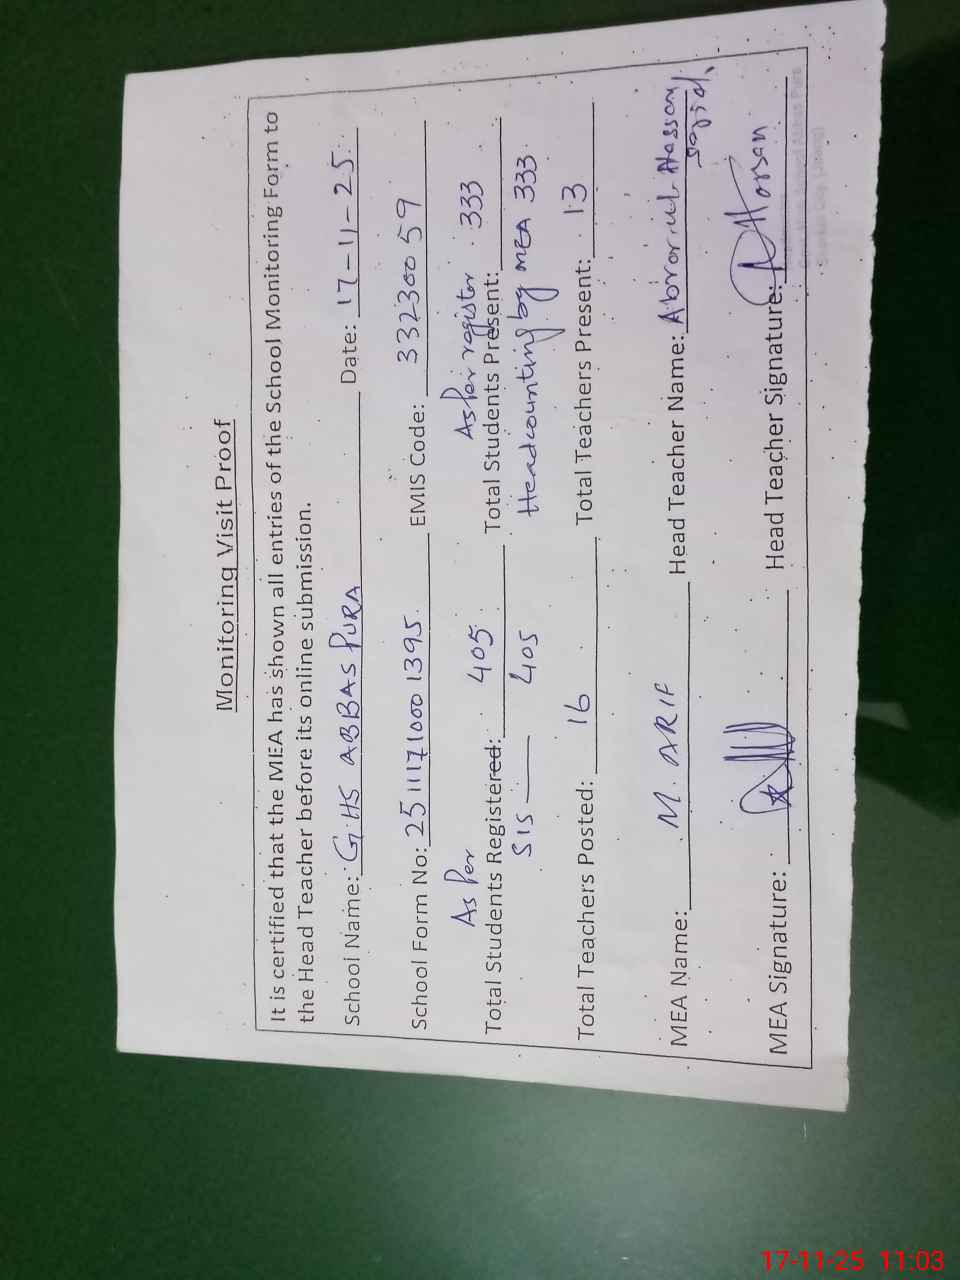 Monitoring Visit Proof
It is certified that the MEA has shown all entries of the School Monitoring Form to
the Head Teacher before its online submission.
School Name: GHS ABBAS PURA Date: 17-11-25
School Form No: 2511171000 1395 EMIS Code: 33230059
As Per As Per register
Total Students Registered: 405 Total Students Present: 333
SIS 405 Headcounting by MEA 333
Total Teachers Posted: 16 Total Teachers Present: 13
MEA Name: M. ARIF Head Teacher Name: Abrar ul Hassan
MEA Signature: Head Teacher Signature: AHassan
17-11-25 11:03